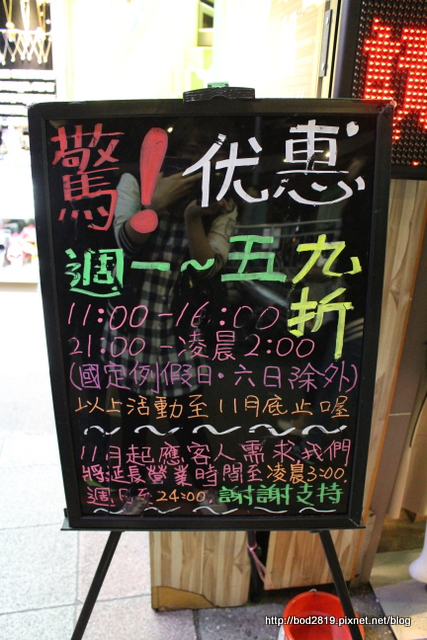 驚！优惠
週一~五九折
11:00-16:00
21:00-凌晨2:00
(國定例假日.六日除外)
以上活動至11月底止喔
11月起應客人需求我們
將延長營業時間至凌晨3:00.
週日至24:00.謝謝支持
http://bod2819.pixnet.net/blog